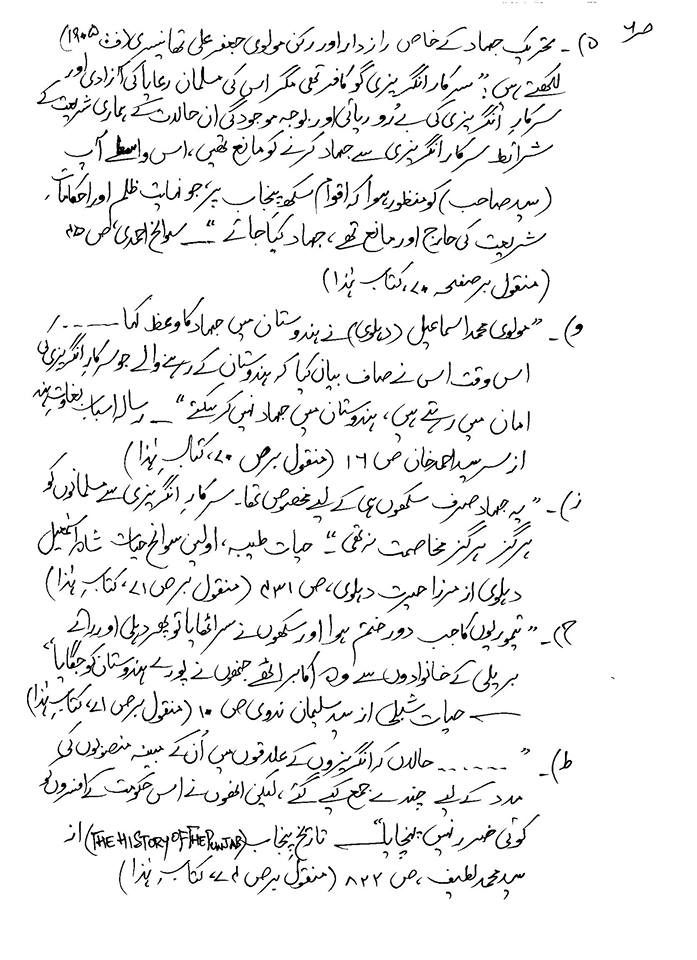 ص ۶
ہ)۔ تحریک جہاد کے خاص رازدار اور رکن مولوی جعفر علی تھانیسری (ف ۱۹۰۵)
لکھتے ہیں: "سرکار انگریزی گو کافر تھی مگر اس کی مسلمان رعایا کی آزادی اور
سرکارِ انگریزی کی بے رو ریائی اور بوجہ موجودگی ان حالات کے ہماری شریعت کے
شرائط سرکار انگریزی سے جہاد کرنے کو مانع تھیں، اس واسطے آپ
(سید صاحب) کو منظور ہوا کہ اقوام سکھ پنجاب پر، جو نہایت ظلم اور احکامات
شریعت کی حارج اور مانع تھے، جہاد کیا جائے" ــ سوانح احمدی، ص ۴۵
(منقول بر صفحہ ۷۰، کتاب ہٰذا)
و)۔ "مولوی محمد اسماعیل (دہلوی) نے ہندوستان میں جہاد کا وعظ کہا ــ ۔۔۔۔
اس وقت اس نے صاف بیان کیا کہ ہندوستان کے رہنے والے جو سرکارِ انگریزی کی
امان میں رہتے ہیں، ہندوستان میں جہاد نہیں کر سکتے" ــ رسالہ اسباب بغاوت ہند
از سر سید احمد خان ص ۱۶ (منقول بر ص ۷۰، کتاب ہٰذا)
ز)۔ "یہ جہاد صرف سکھوں ہی کے لیے مخصوص تھا۔ سرکارِ انگریزی سے مسلمانوں کو
ہرگز ہرگز مخاصمت نہ تھی"۔ حیات طیبہ، اولین سوانح حیات شاہ اسمٰعیل
دہلوی از مرزا حیرت دہلوی، ص ۲۳۱ (منقول بر ص ۷۱، کتاب ہٰذا)
ح)۔ "تیموریوں کا جب دور ختم ہوا اور سکھوں نے سر اٹھایا تو پھر دہلی اور رائے
بریلی کے خانوادوں سے وہ اکابر اٹھے جنھوں نے پورے ہندوستان کو جگایا"
ــ حیات شبلی از سید سلیمان ندوی ص ۱۰ (منقول بر ص ۷۱، کتاب ہٰذا)
ط)۔ "۔۔۔۔۔۔ حالاں کہ انگریزوں کے علاقوں میں اُن کے مبینہ منصوبوں کی
مدد کے لیے چندے جمع کیے گئے، لیکن انھوں نے اس حکومت کے افسروں کو
کوئی ضرر نہیں پہنچایا" ــ تاریخ پنجاب (THE HISTORY OF THE PUNJAB) از
سید محمد لطیف، ص ۸۲۲ (منقول بر ص ۷۴، کتاب ہٰذا)